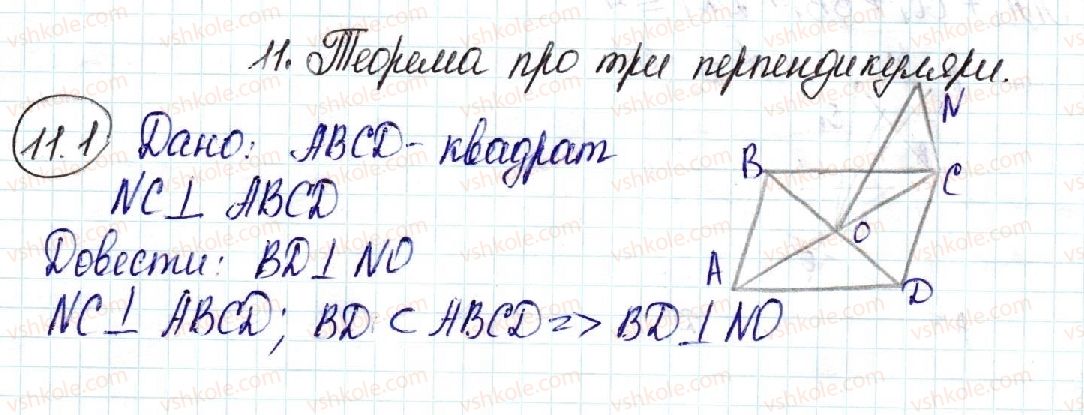 11. Теорема про три перпендикуляри.
11.1 Дано: ABCD - квадрат
NC ⊥ ABCD
Довести: BD ⊥ NO
NC ⊥ ABCD; BD ⊂ ABCD => BD ⊥ NO
N
B
C
O
A
D
vshkole.com